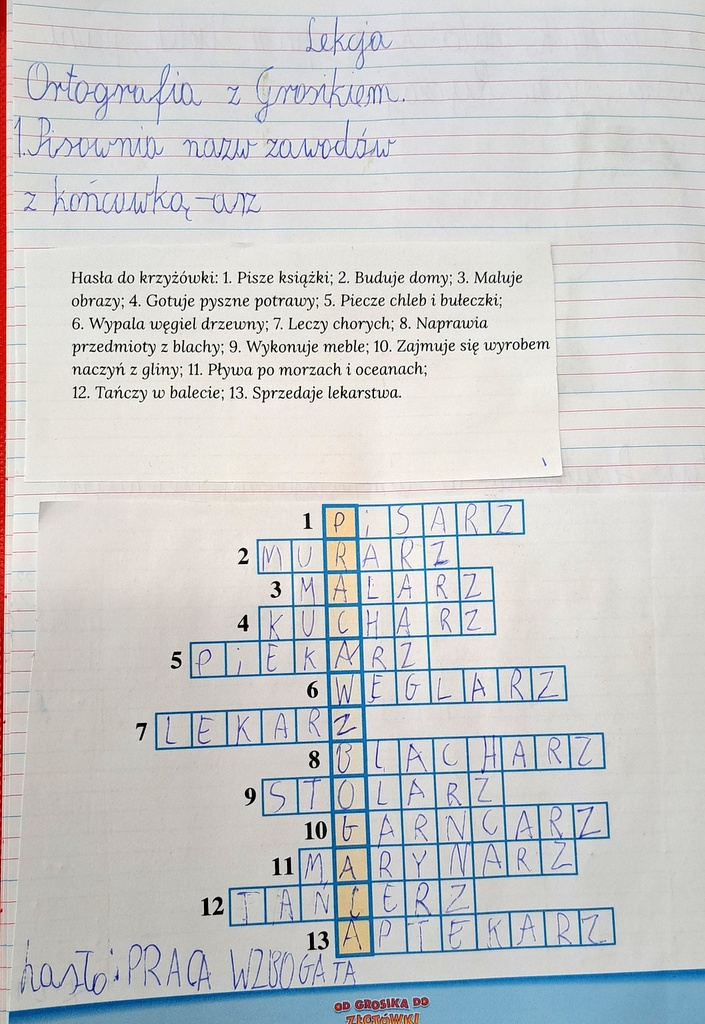 Lekcja
Ortografia z Grosikiem.
1. Pisownia nazw zawodów
z końcówką -arz
Hasła do krzyżówki: 1. Pisze książki; 2. Buduje domy; 3. Maluje
obrazy; 4. Gotuje pyszne potrawy; 5. Piecze chleb i bułeczki;
6. Wypala węgiel drzewny; 7. Leczy chorych; 8. Naprawia
przedmioty z blachy; 9. Wykonuje meble; 10. Zajmuje się wyrobem
naczyń z gliny; 11. Pływa po morzach i oceanach;
12. Tańczy w balecie; 13. Sprzedaje lekarstwa.
1 PiSARZ
2 MURARZ
3 MALARZ
4 KUCHARZ
5 PiEKARZ
6 WĘGLARZ
7 LEKARZ
8 BLACHARZ
9 STOLARZ
10 GARNCARZ
11 MARYNARZ
12 TAŃCERZ
13 APTEKARZ
hasło: PRACA WZBOGACA
OD GROSIKA DO
ZŁOTÓWKI